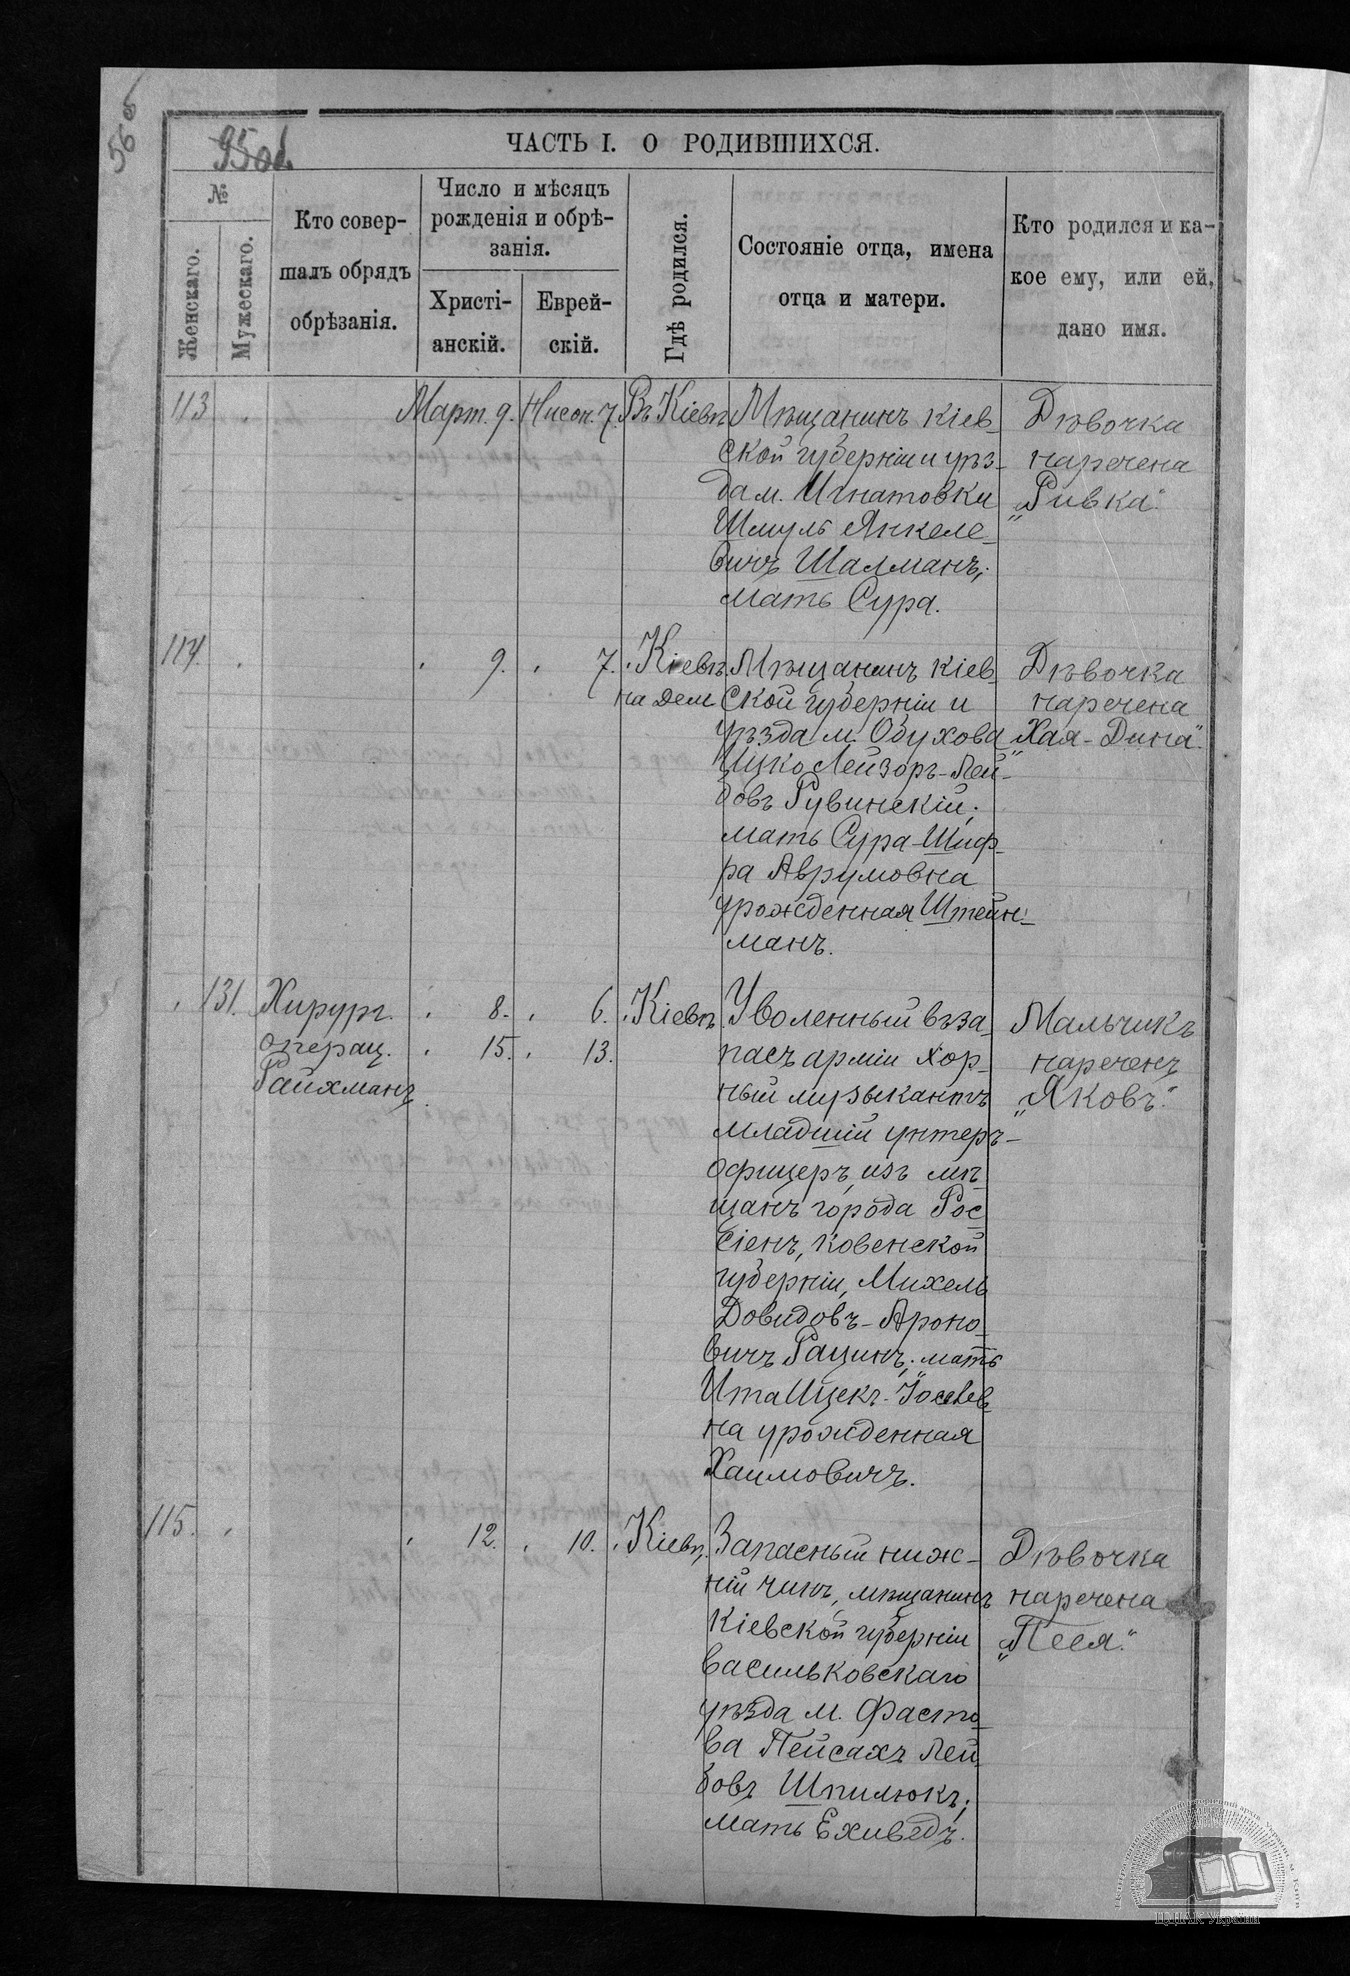 ЧАСТЬ I. О РОДИВШИХСЯ.
№
Женскаго.
Мужескаго.
Кто совер-
шалъ обрядъ
обрѣзанія.
Число и мѣсяцъ
рожденія и обрѣ-
занія.
Христі-
анскій.
Еврей-
скій.
Гдѣ родился.
Состояніе отца, имена
отца и матери.
Кто родился и ка-
кое ему, или ей,
дано имя.
113
Март. 9.
Нисон. 7.
Въ Кіевѣ
Мѣщанинъ Кіев-
ской губерніи и уѣз-
да м. Игнатовки
Шмуль Янкеле-
вичъ Шалманъ;
мать Сура.
Дѣвочка
наречена
„Ривка".
114.
9.
7.
Кіевѣ
на Дем
Мѣщанинъ Кіев
ской губерніи и
уѣзда м. Обухова
Ицко Лейзоръ-Лей-
бовъ Рувинскій;
мать Сура-Шиф-
ра Аврумовна
урожденная Штейн-
манъ.
Дѣвочка
наречена
„Хая-Дина".
131.
Хирург.
операц.
Райхманъ
8.
15.
6.
13.
Кіевѣ
Уволенный въ за-
пасъ арміи хор-
ный музыкантъ
младшій унтеръ-
офицеръ, изъ мѣ-
щанъ города Рос
сіенъ, Ковенской
губерніи, Михель
Довидовъ-Ароно-
вичъ Рацинъ; мать
Ита Ицекъ-Іосев
на урожденная
Хаимовичъ.
Мальчикъ
нареченъ
„Яковъ".
115.
12.
10.
Кіевѣ
Запасный ниж-
ній чинъ, мѣщанинъ
Кіевской губерніи
Васильковскаго
уѣзда м. Фасто-
ва Пейсахъ Лей
бовъ Шпилюкъ;
мать Ехиведъ.
Дѣвочка
наречена
„Песя".
ЦДІАК України